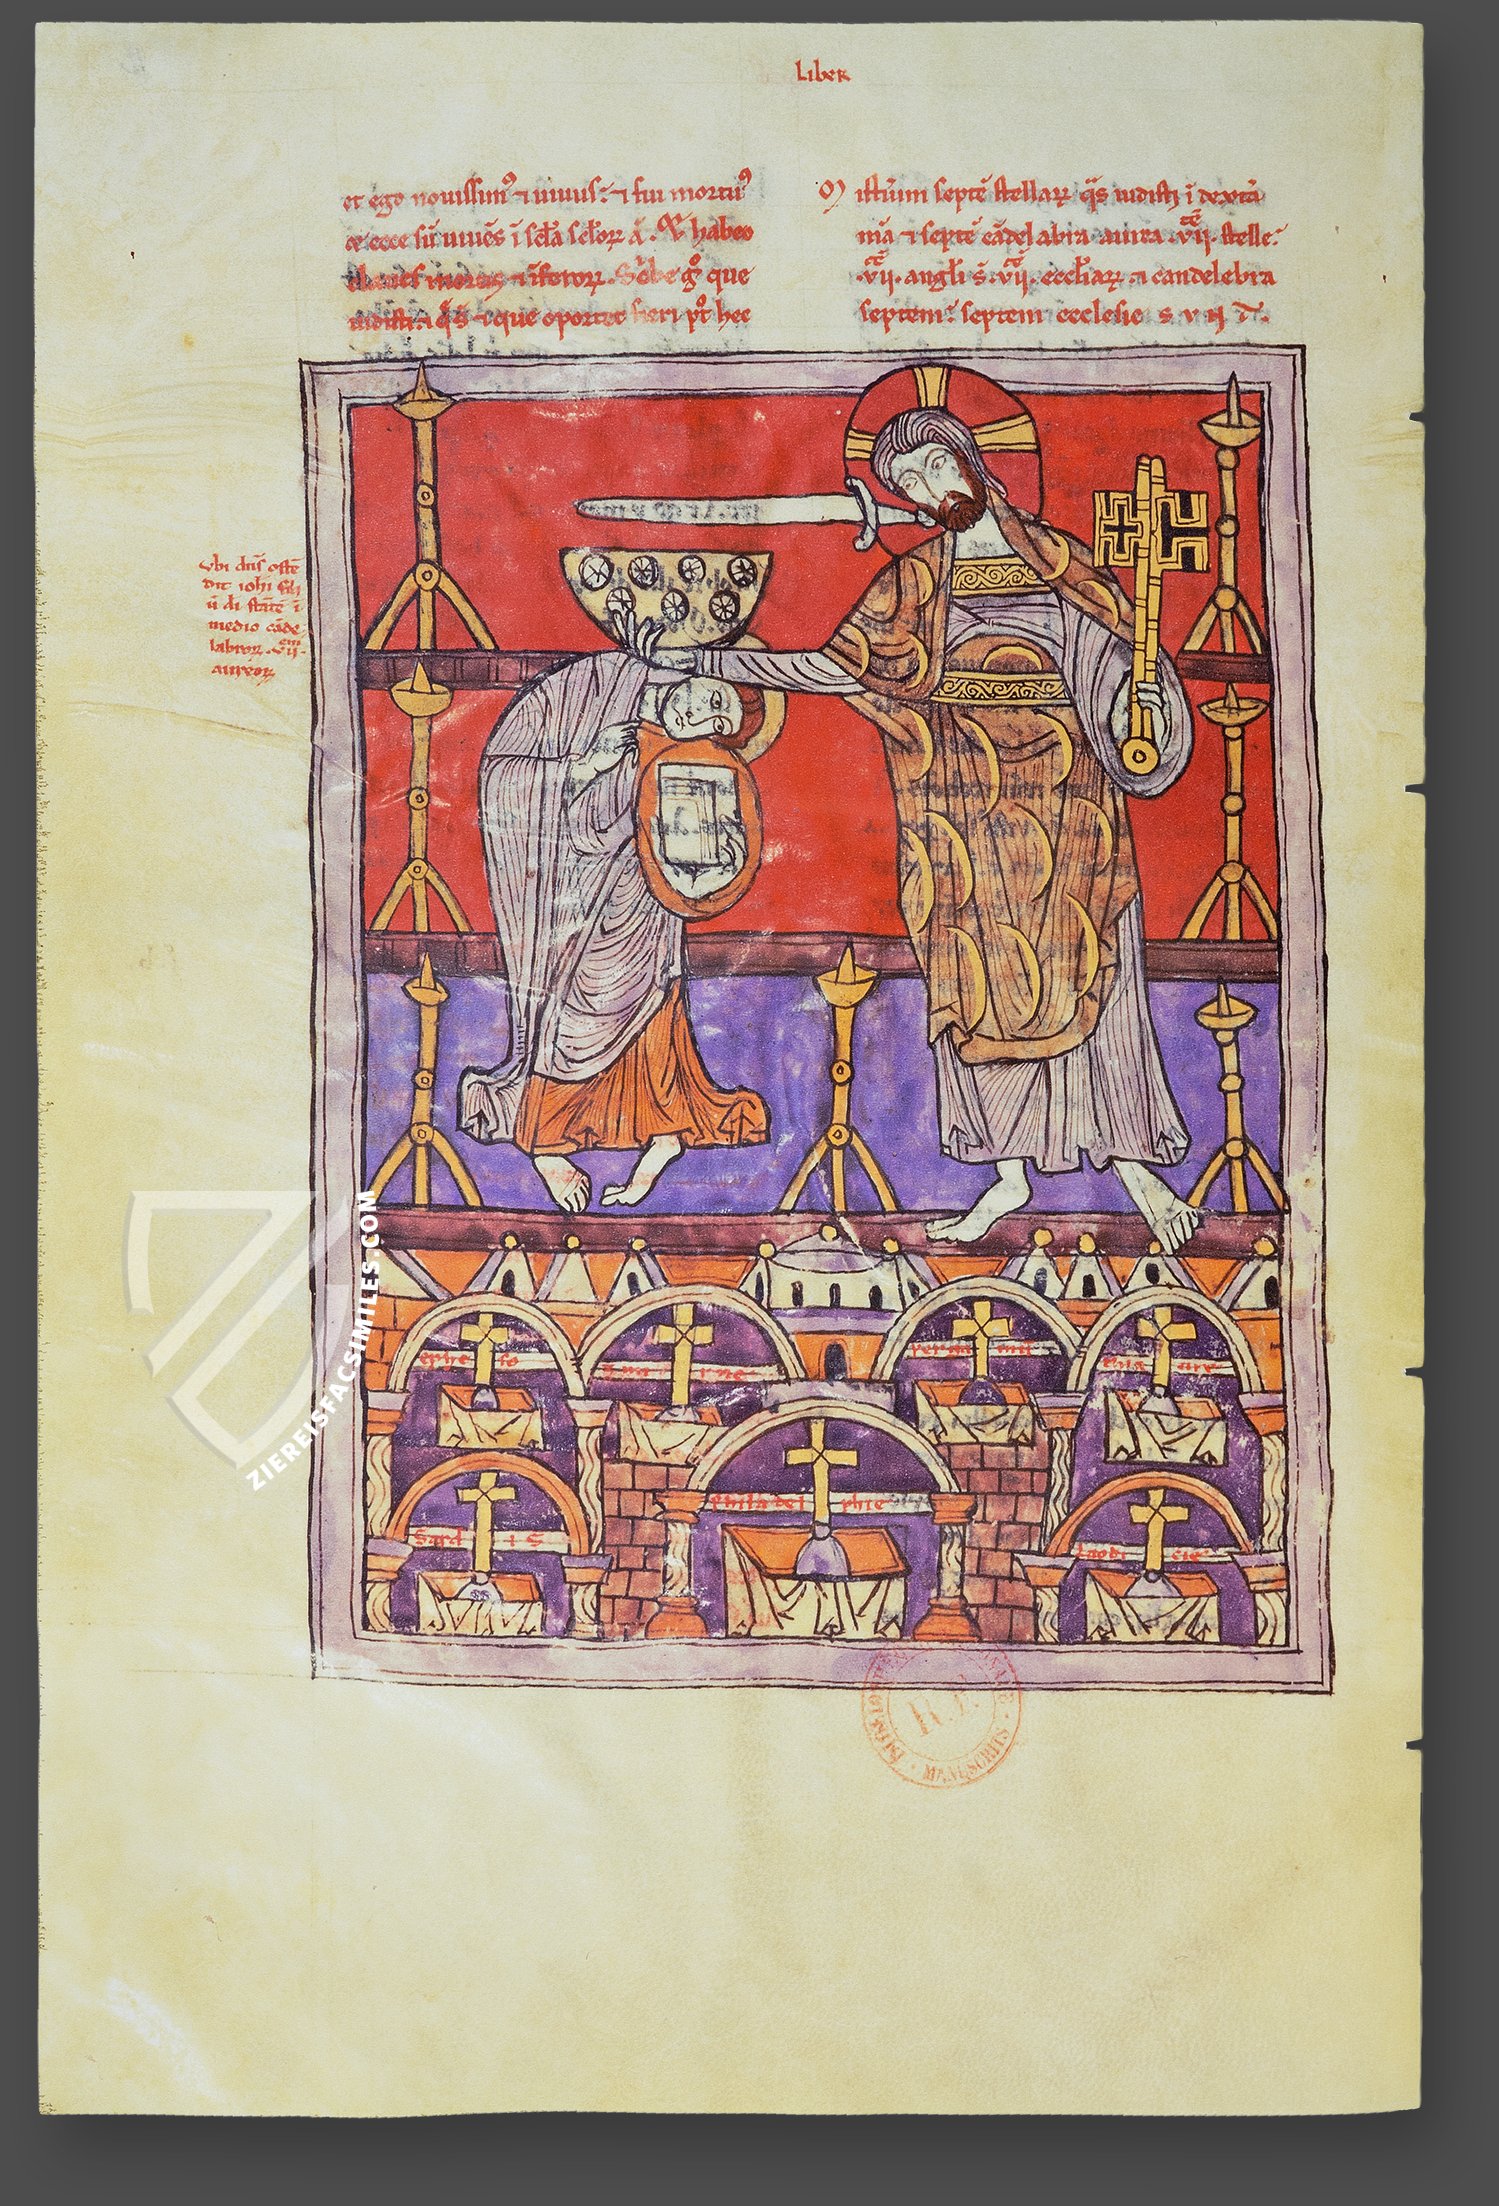 Liber
et ego novissim᾽ ⁊ vivus: ⁊ fui mortu᾽
⁊ ecce sū vivēs ī scl̄a scl̄orꝝ ā. Qr̄ habeo
claues mortis ⁊ īferorꝝ. Sc̄be gͦ que
uidisti: ⁊ q̄ s̄ ⁊ que oportet fieri pͦt hec
Mistūm septē stellarꝝ q̄s uidisti ī dextā
mā ⁊ septē cādelabra aurea .vij. stelle:
.vij. angl̄i s̄ .vij. eccl̄iarꝝ. ⁊ candelebra
septem: septem ecclesie s v n t.
Vbi dn̄s ostē
dit iohi fili
ū dī stātē ī
medio cāde
labrorꝝ .vij.
aureorꝝ
ephe so
zma rne
perga mū
thia tire
phila del phie
Sard i S
laodi cie
BIBLIOTHÈQUE NATIONALE
R.F.
MANUSCRITS
ZIEREISFACSIMILES.COM